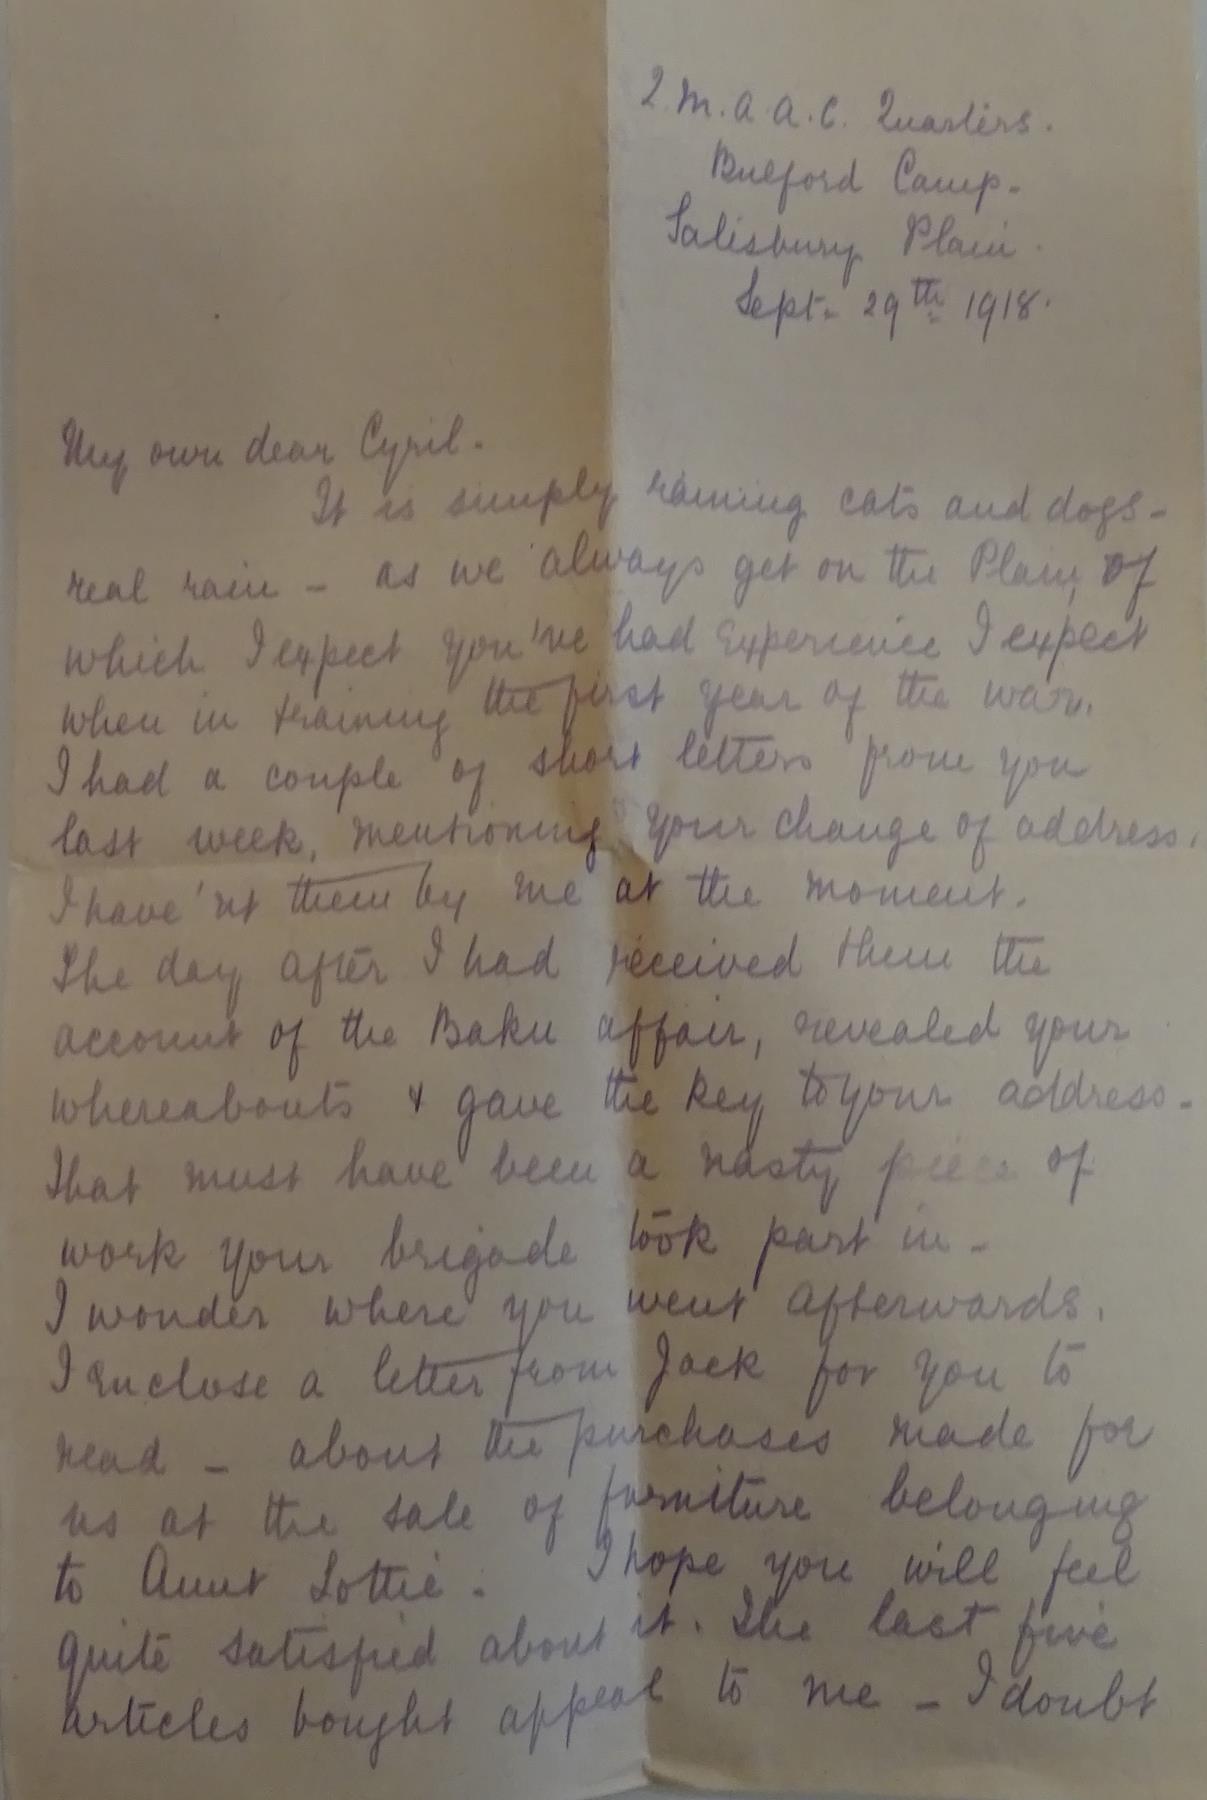 2. M. A. A. C. Quarters.
Bulford Camp.
Salisbury Plain.
Sept. 29th 1918.
My own dear Cyril.
It is simply raining cats and dogs -
real rain - as we always get on the Plain, of
which I expect you've had experience I expect
when in training the first year of the war.
I had a couple of short letters from you
last week, mentioning your change of address.
I have'nt them by me at the moment.
The day after I had received them the
account of the Baku affair, revealed your
whereabouts & gave the key to your address -
That must have been a nasty piece of
work your brigade took part in -
I wonder where you went afterwards.
I enclose a letter from Jack for you to
read - about the purchases made for
us at the sale of furniture belonging
to Aunt Lottie. I hope you will feel
quite satisfied about it. The last five
articles bought appeal to me - I doubt